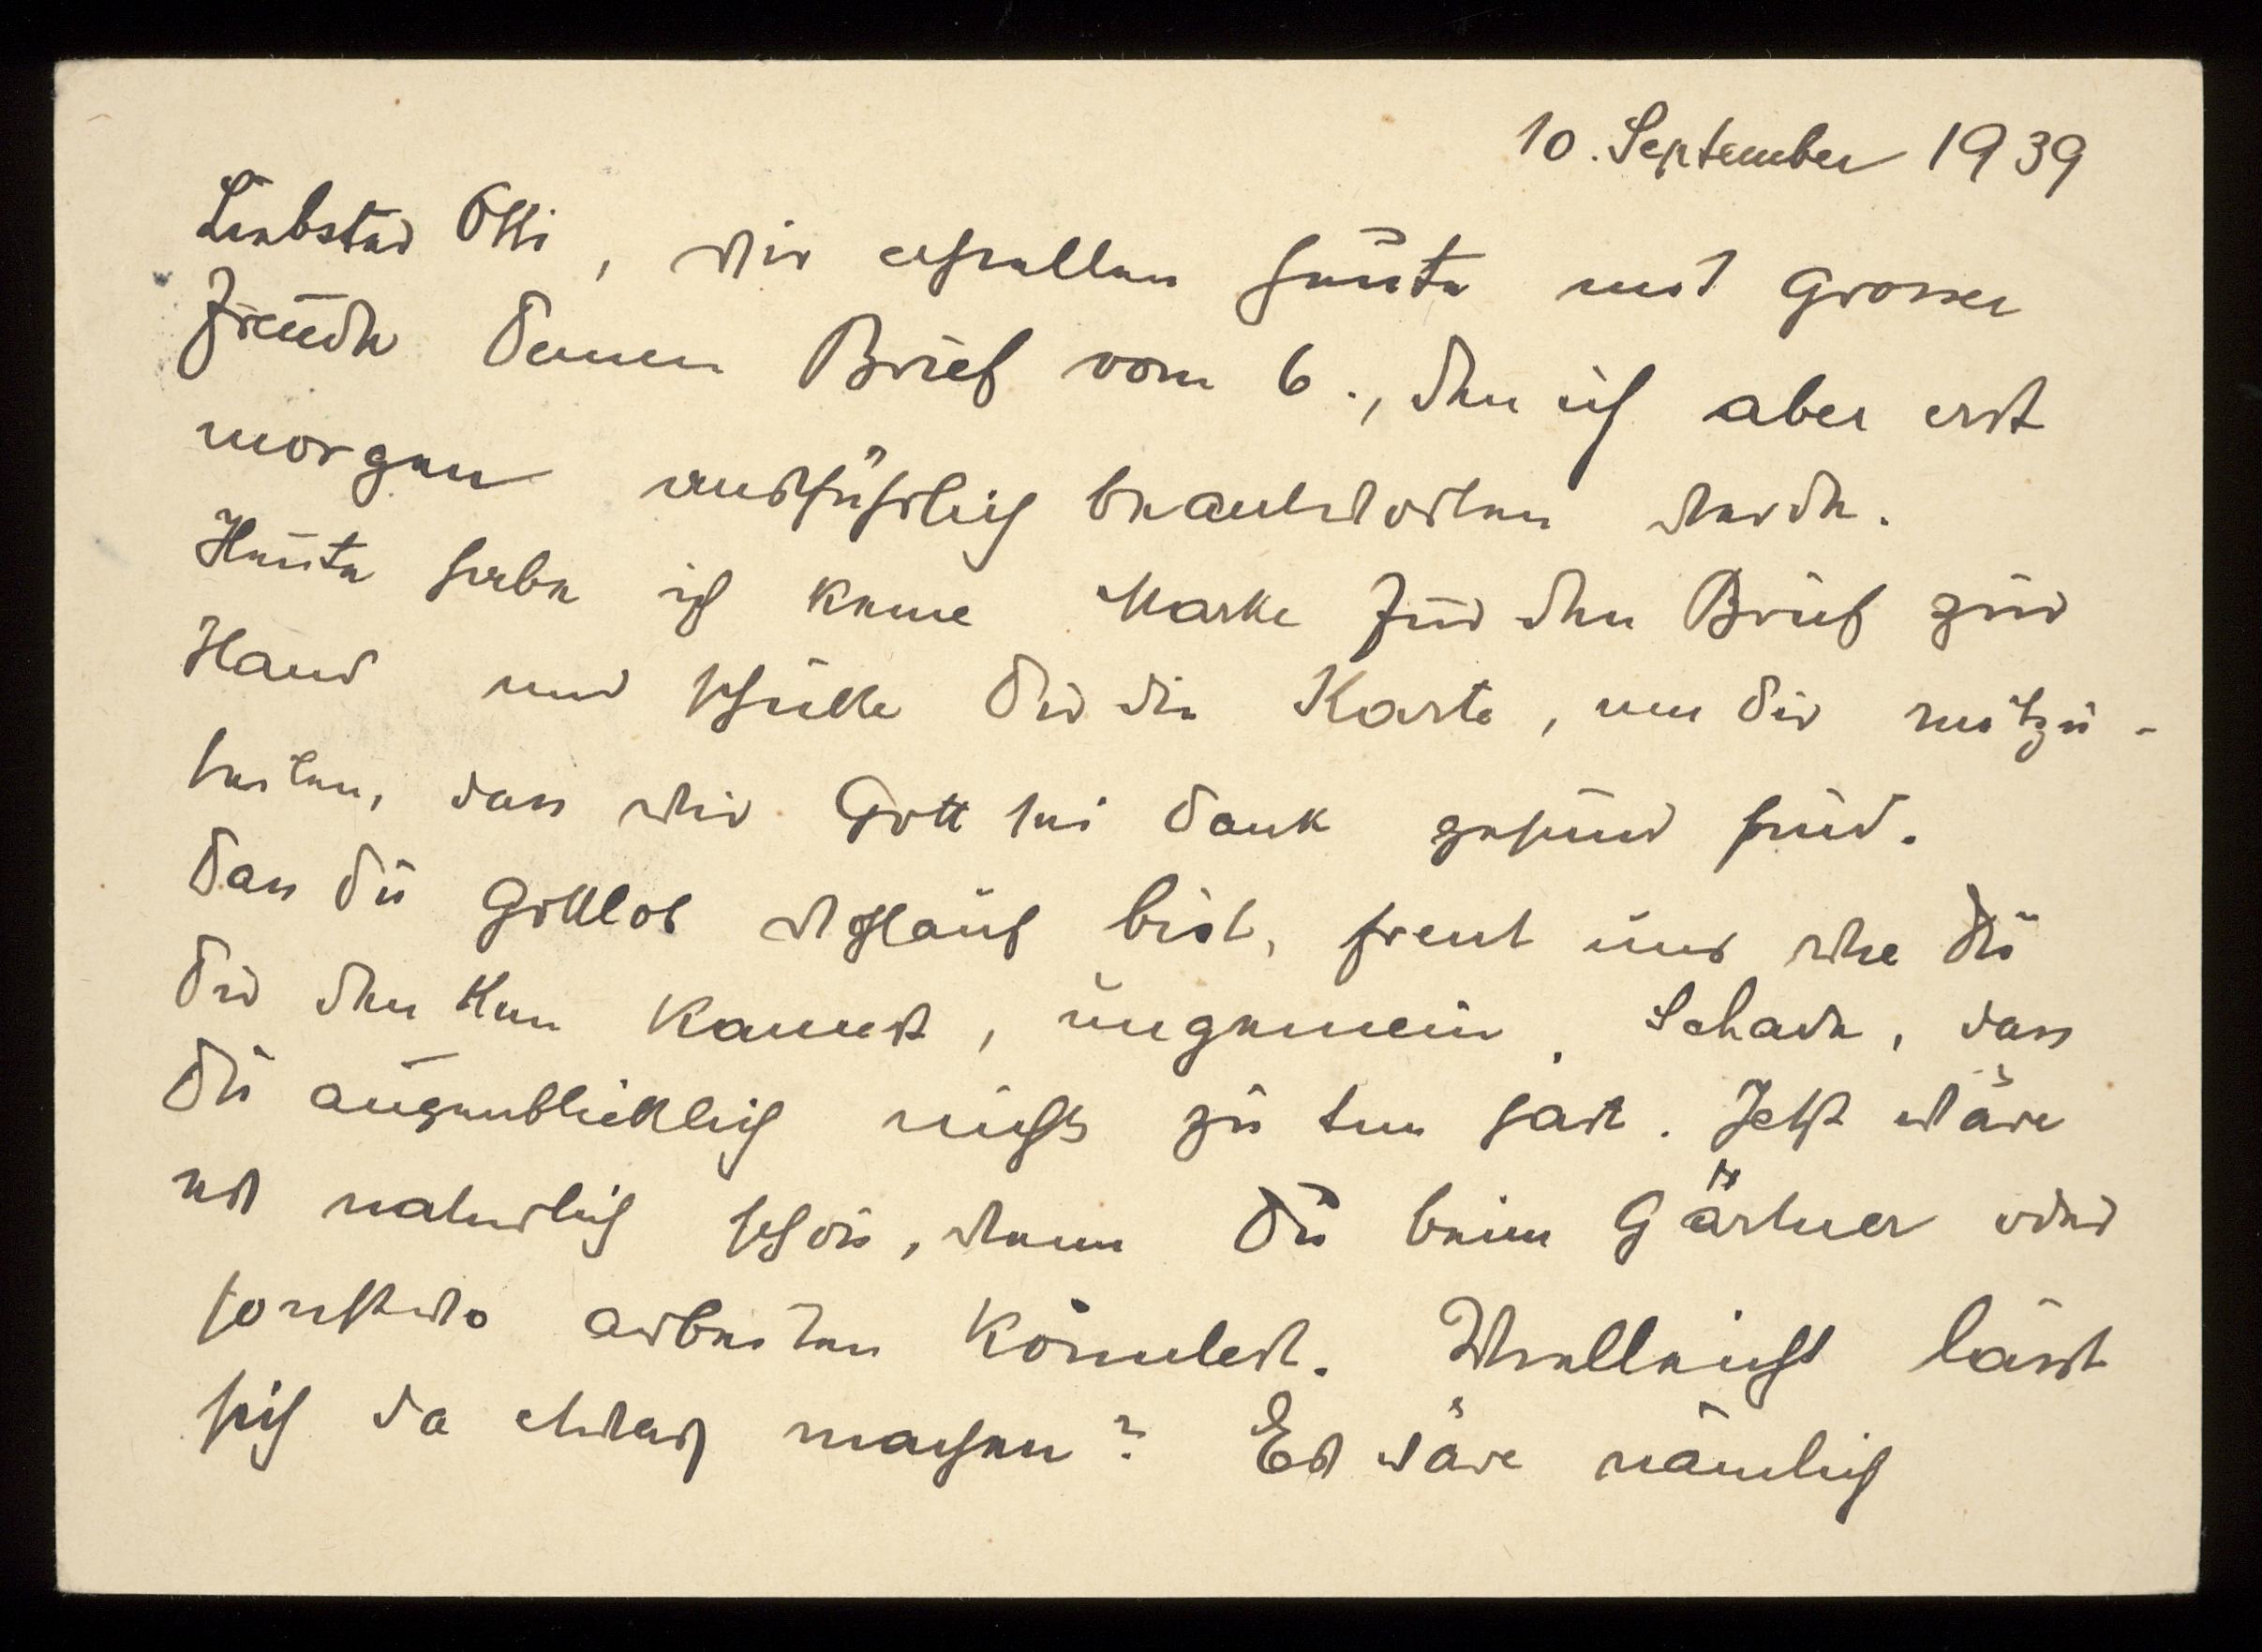 10. September 1939
Liebster Otti, wir erhielten heute mit grosser
Freude Deinen Brief vom 6., den ich aber erst
morgen ausführlich beantworten werde.
Heute habe ich keine Marke für den Brief zur
Hand und schicke Dir die Karte, um Dir mitzu-
teilen, dass wir Gott sei Dank gesund sind.
Dass Du Gottlob wohlauf bist, freut uns wie Du
Dir denken kannst, ungemein. Schade, dass
Du augenblicklich nichts zu tun hast. Jetzt wäre
es natürlich schön, wenn Du beim Gärtner oder
sonstwo arbeiten könntest. Vielleicht lässt
sich da etwas machen? Es wäre nämlich